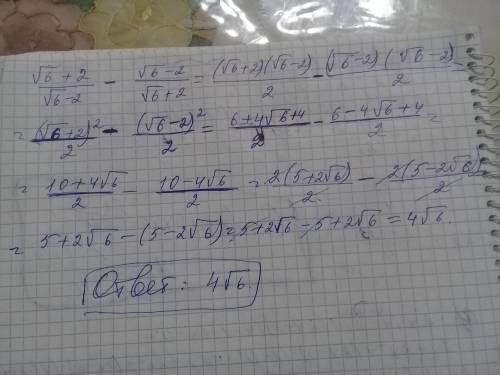 (√6 + 2)/(√6 - 2) - (√6 - 2)/(√6 + 2) = (√6+2)(√6-2)/2 - (√6-2)(√6-2)/2 =
= (√6+2)²/2 - (√6-2)²/2 = (6+4√6+4)/2 - (6-4√6+4)/2 =
= (10+4√6)/2 - (10-4√6)/2 = 2(5+2√6)/2 - 2(5-2√6)/2 =
= 5+2√6 - (5-2√6) = 5+2√6 - 5+2√6 = 4√6.
Ответ: 4√6.